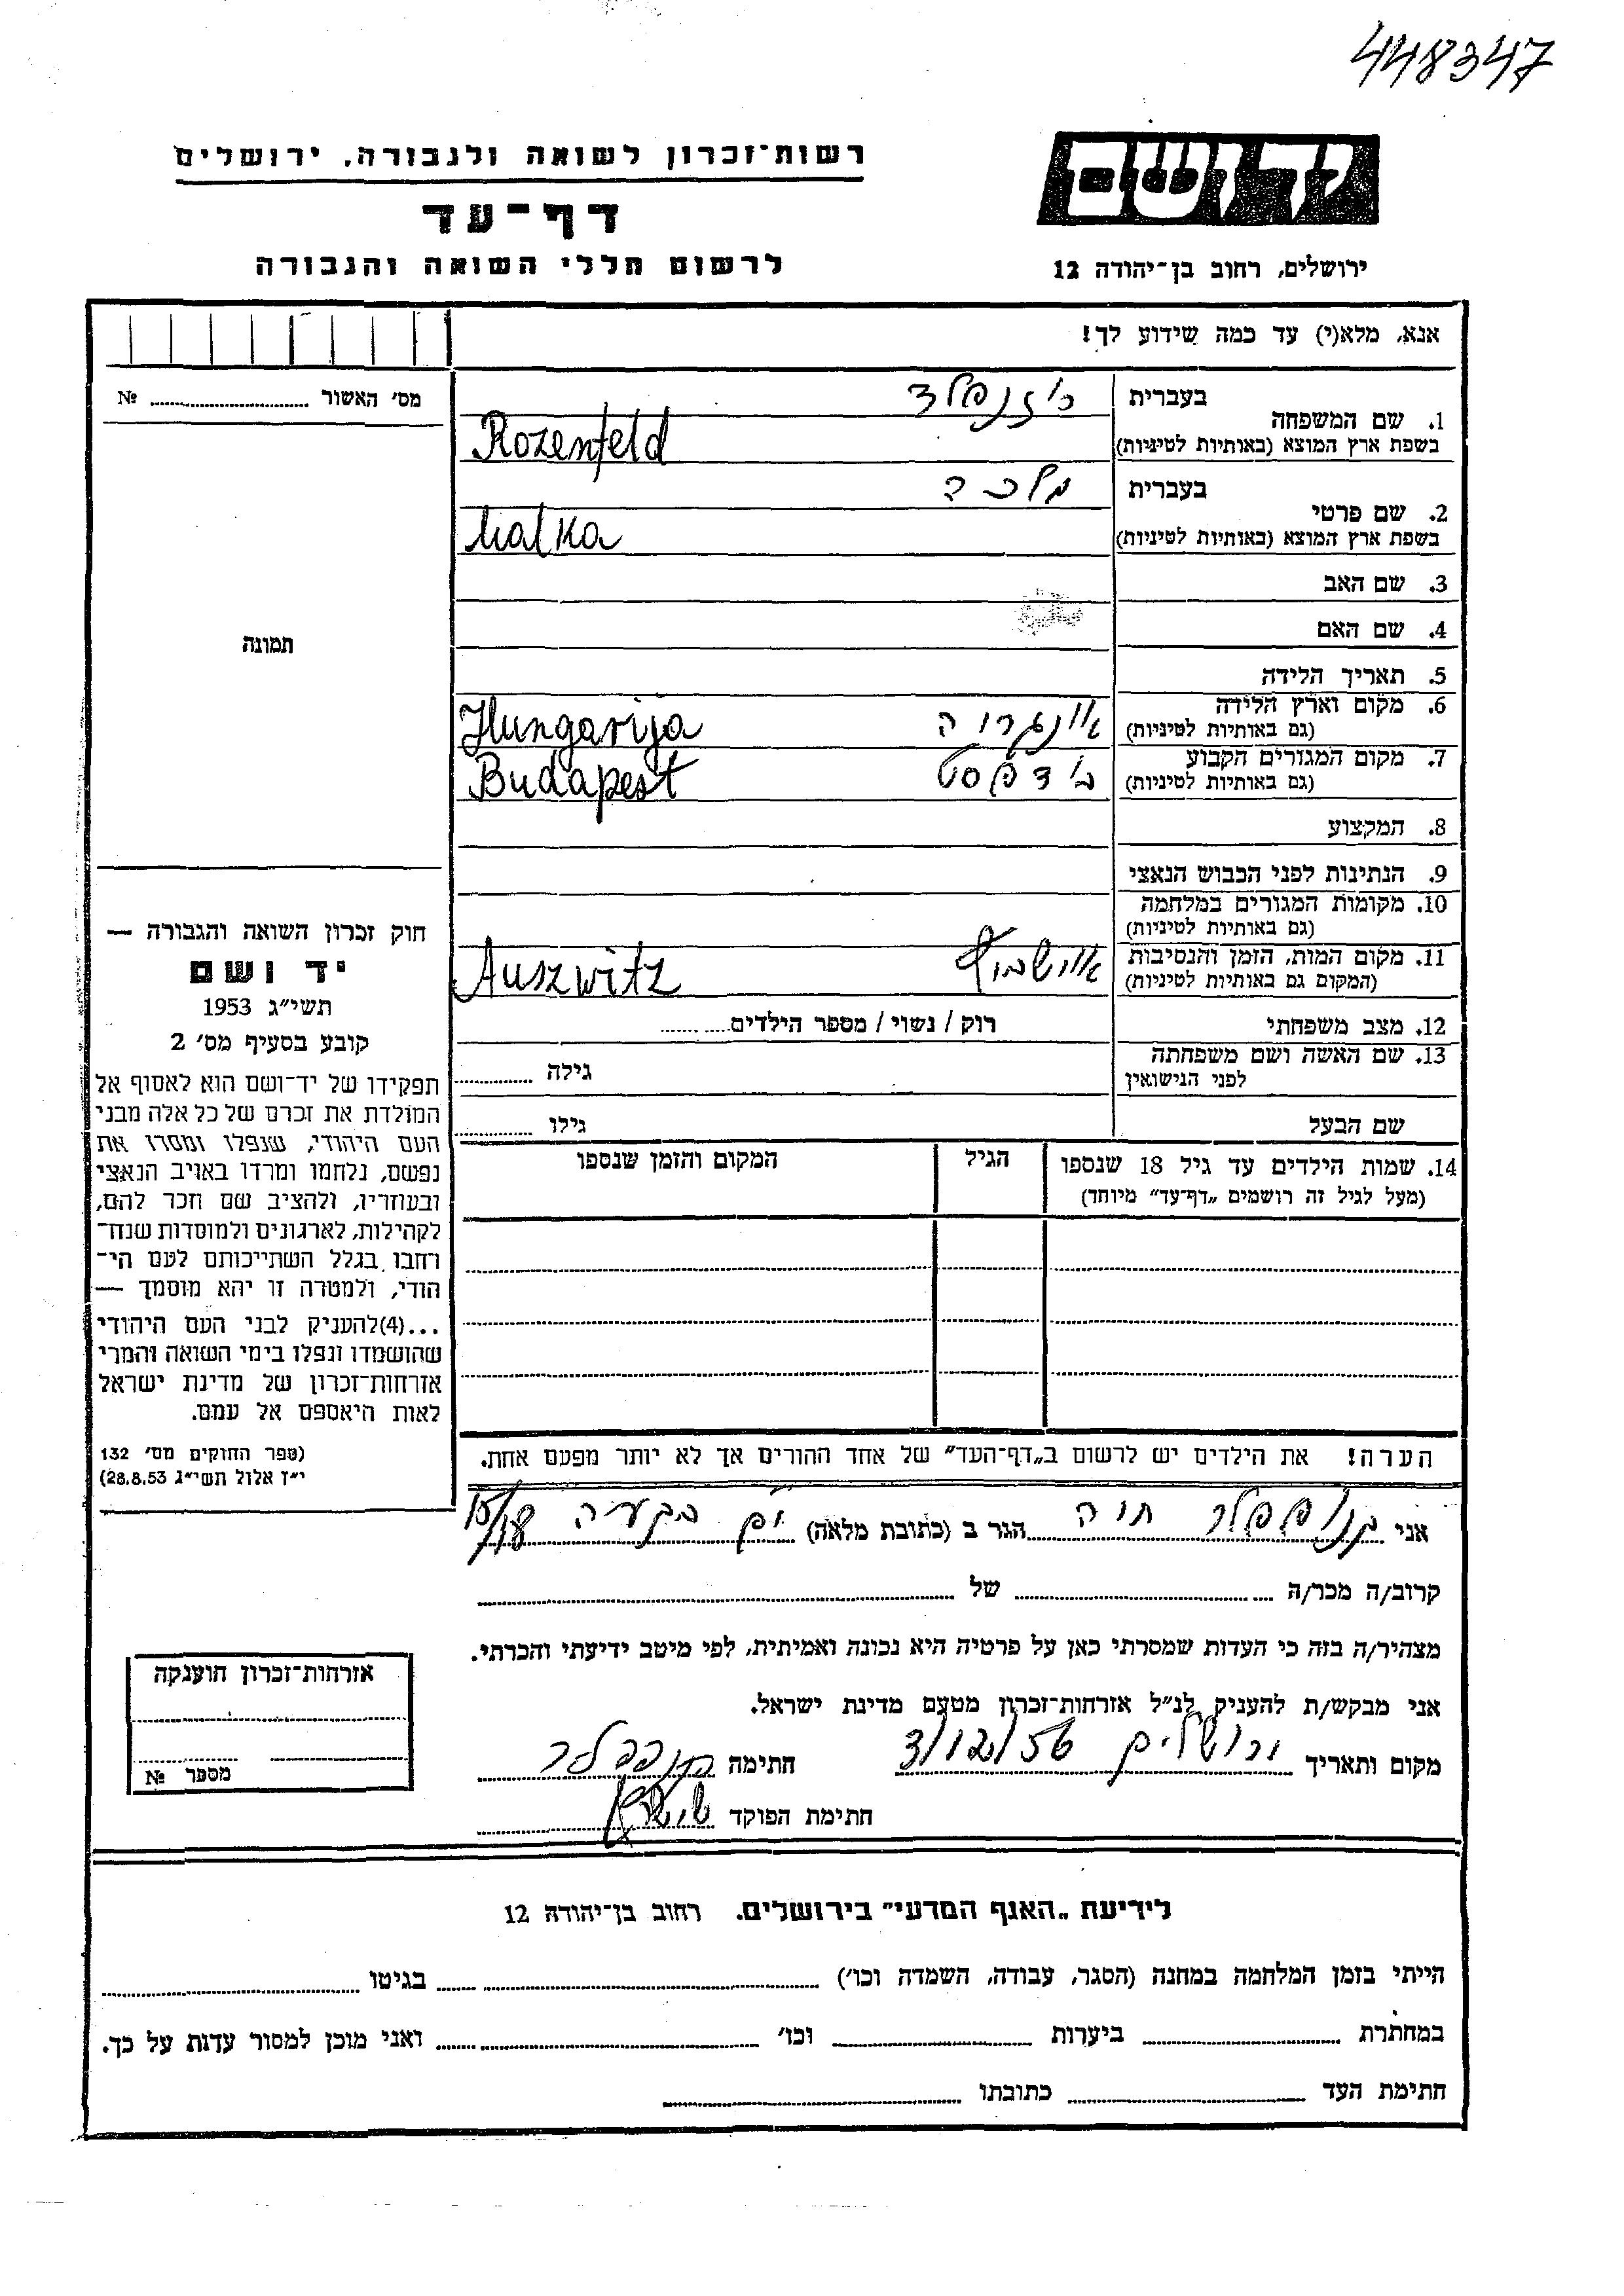 448347
יד ושם
רשות־זכרון לשואה ולגבורה, ירושלים
דף־עד
לרשום חללי השואה והגבורה
ירושלים, רחוב בן־יהודה 12
אנא, מלא(י) עד כמה שידוע לך!
מס׳ האשור ........ №
תמונה
חוק זכרון השואה והגבורה —
יד ושם
תשי״ג 1953
קובע בסעיף מס׳ 2
תפקידו של יד־ושם הוא לאסוף אל
המולדת את זכרם של כל אלה מבני
העם היהודי, שנפלו ומסרו את
נפשם, נלחמו ומרדו באויב הנאצי
ובעוזריו, ולהציב שם וזכר להם,
לקהילות, לארגונים ולמוסדות שנח־
רחבו בגלל השתייכותם לעם הי־
הודי, ולמטרה זו יהא מוסמך —
...(4)להעניק לבני העם היהודי
שהושמדו ונפלו בימי השואה והמרי
אזרחות־זכרון של מדינת ישראל
לאות היאספם אל עמם.
(ספר החוקים מס׳ 132
י״ז אלול תשי״ג 28.8.53)
1. שם המשפחה
בעברית רוזנפלד
בשפת ארץ המוצא (באותיות לטיניות) Rozenfeld
2. שם פרטי
בעברית מלכה
בשפת ארץ המוצא (באותיות לטיניות) Malka
3. שם האב
4. שם האם
5. תאריך הלידה
6. מקום וארץ הלידה
(גם באותיות לטיניות) אונגריה Hungarija
7. מקום המגורים הקבוע
(גם באותיות לטיניות) בודפסט Budapest
8. המקצוע
9. הנתינות לפני הכבוש הנאצי
10. מקומות המגורים במלחמה
(גם באותיות לטיניות)
11. מקום המות, הזמן והנסיבות
(המקום גם באותיות לטיניות) אושביץ Auszwitz
12. מצב משפחתי רוק / נשוי / מספר הילדים........
13. שם האשה ושם משפחתה
לפני הנישואין גילה ........
שם הבעל גילו ........
14. שמות הילדים עד גיל 18 שנספו הגיל המקום והזמן שנספו
(מעל לגיל זה רושמים „דף־עד״ מיוחד)
הערה! את הילדים יש לרשום ב„דף־העד״ של אחד ההורים אך לא יותר מפעם אחת.
אני חוה הגר ב (כתובת מלאה) 18/15
קרוב/ה מכר/ה ........ של ........
מצהיר/ה בזה כי העדות שמסרתי כאן על פרטיה היא נכונה ואמיתית, לפי מיטב ידיעתי והכרתי.
אני מבקש/ת להעניק לנ״ל אזרחות־זכרון מטעם מדינת ישראל.
מקום ותאריך ירושלים 3/12/56 חתימה
חתימת הפוקד
אזרחות־זכרון הוענקה
מספר №
לידיעת „האגף המדעי״ בירושלים. רחוב בן־יהודה 12
הייתי בזמן המלחמה במחנה (הסגר, עבודה, השמדה וכו׳) ........ בגיטו ........
במחתרת ........ ביערות ........ וכו׳ ........ ואני מוכן למסור עדות על כך.
חתימת העד ........ כתובתו ........